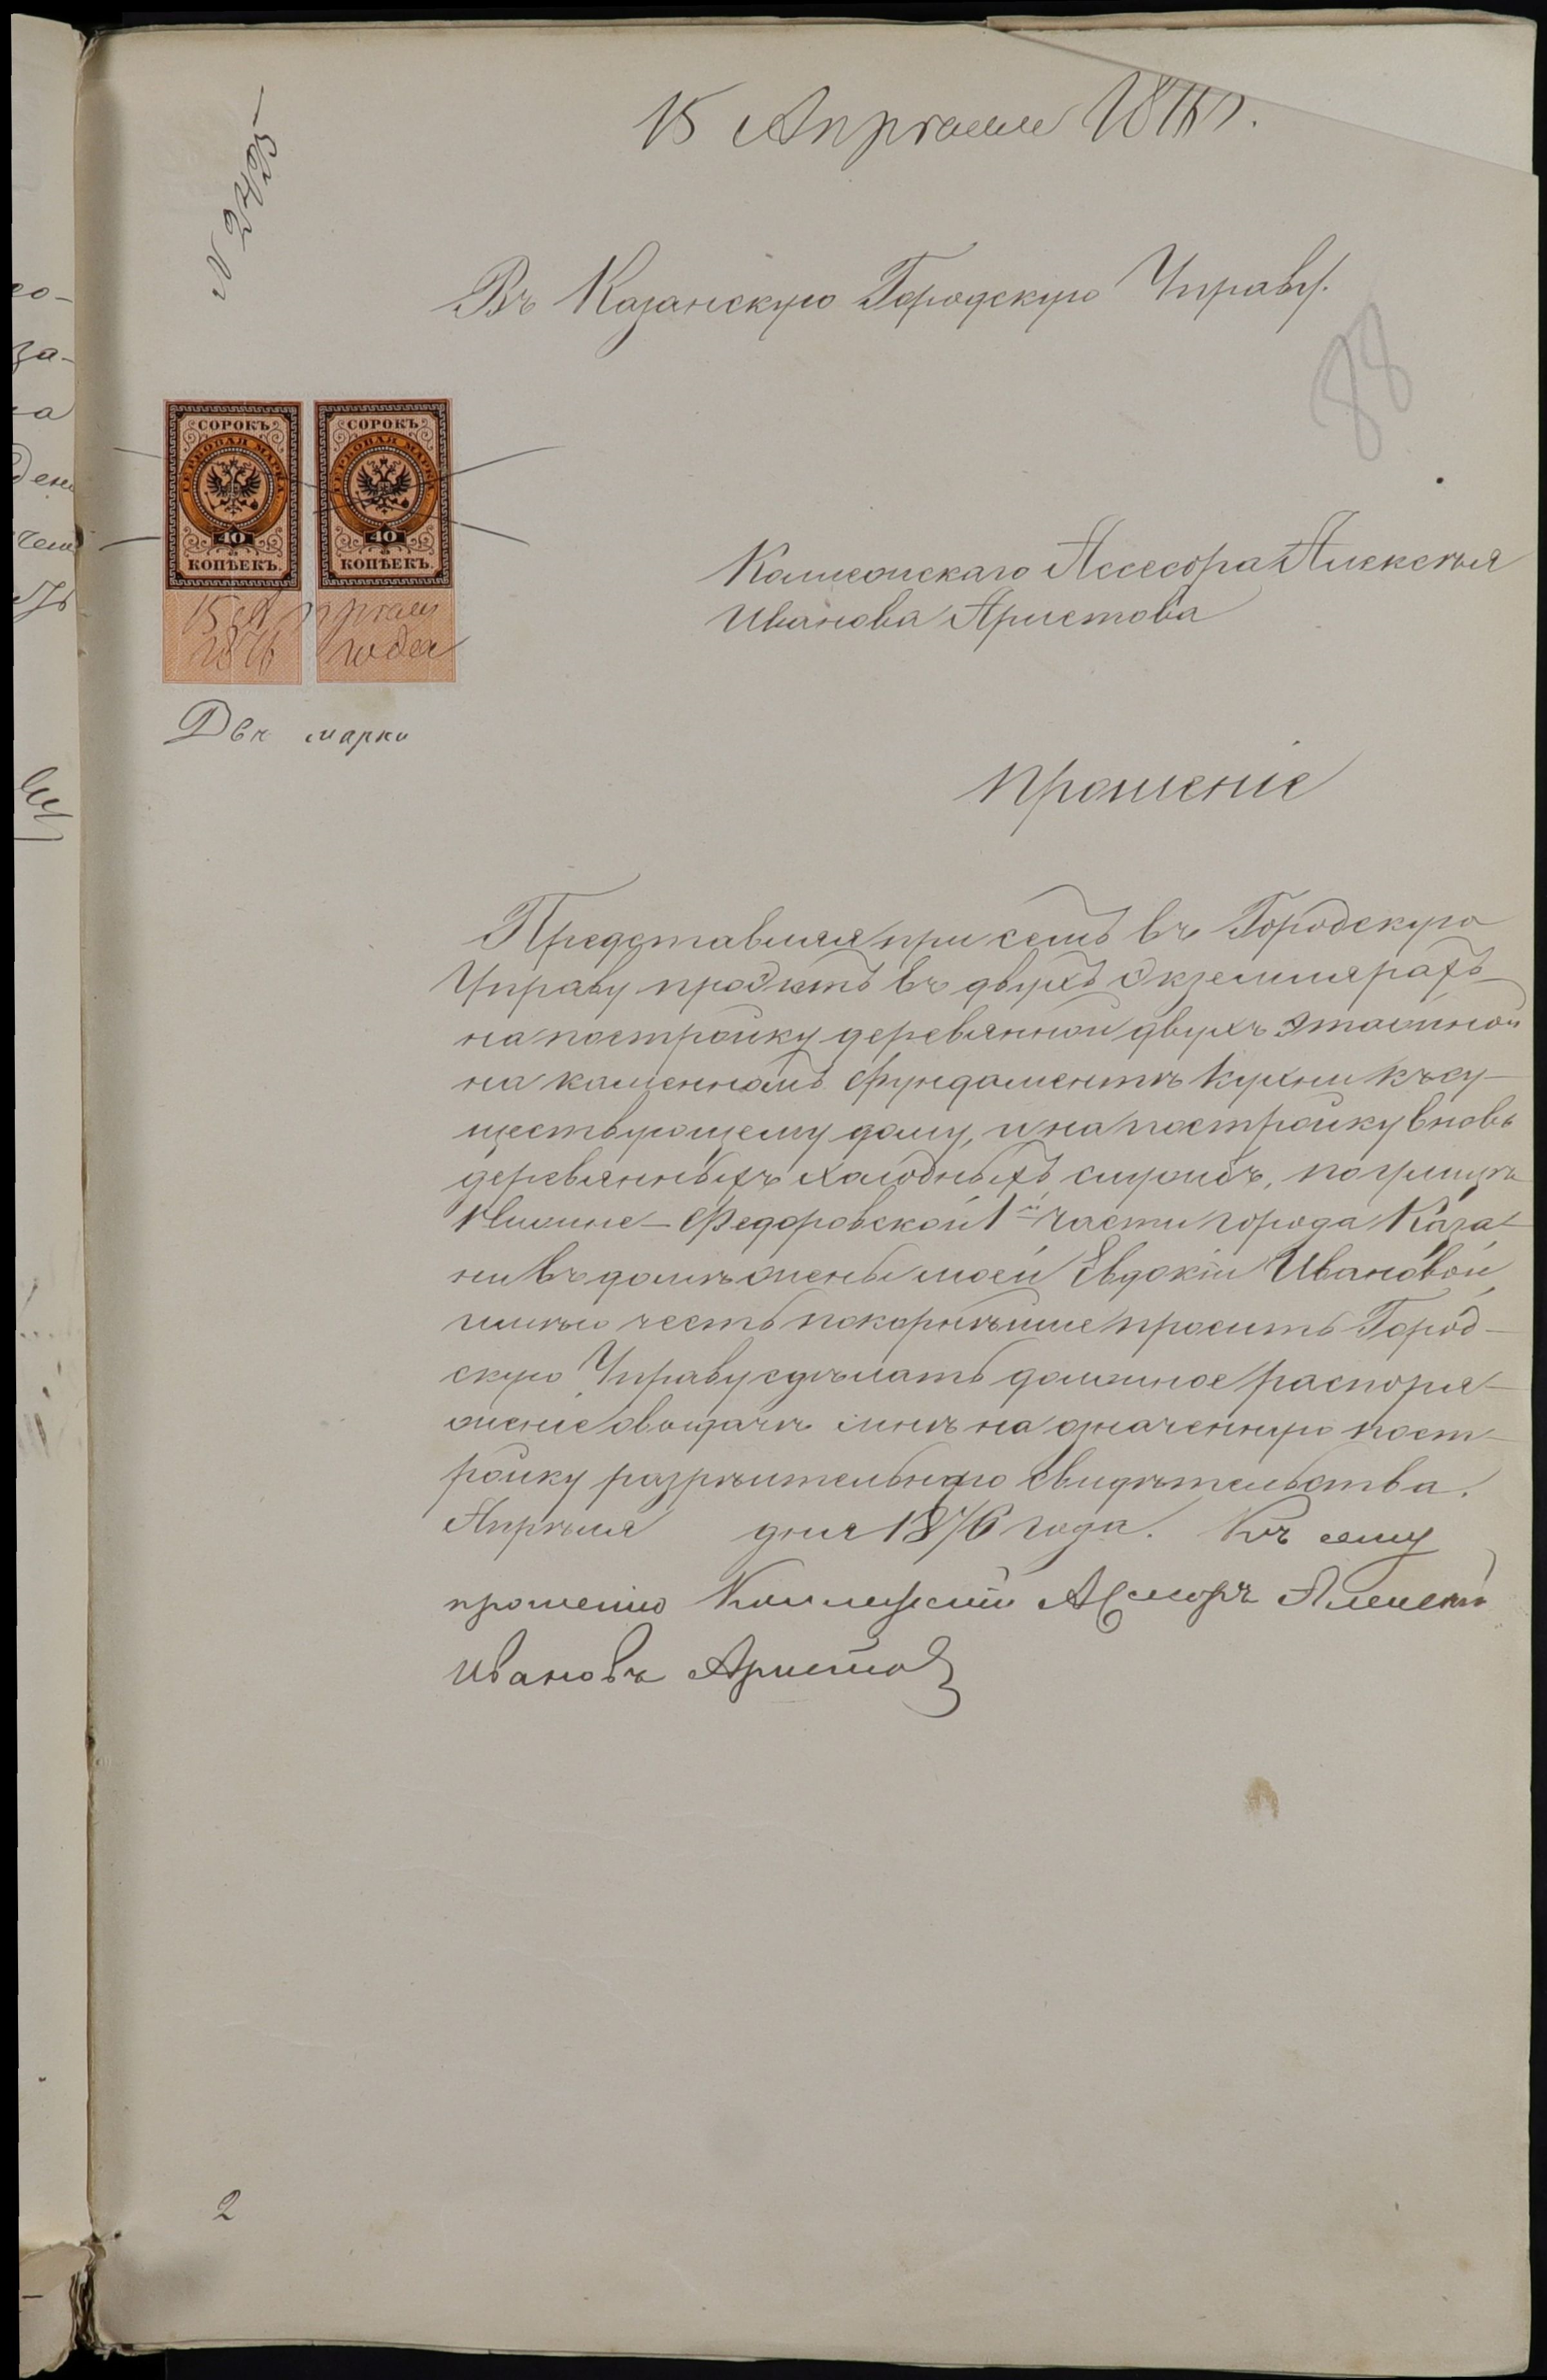 15 Апрѣля 1876 г.
Въ Казанскую Городскую Управу.
88
СОРОКЪ СОРОКЪ
ГЕРБОВАЯ МАРКА ГЕРБОВАЯ МАРКА
40 40
КОПѢЕКЪ. КОПѢЕКЪ.
15 Апрѣля
1876 года
Двѣ марки
Коллежскаго Ассесора Алексѣя
Иванова Аристова
Прошеніе
Представляя при семъ въ Городскую
Управу проэктъ въ двухъ экземплярахъ
на постройку деревянной двухъ этажной
на каменномъ фундаментѣ кухни къ су-
ществующему дому, и на постройку вновь
деревянныхъ холодныхъ службъ, по улицѣ
Федоровской 1й части города Каза-
ни въ домѣ жены моей Евдокіи Ивановой,
имѣю честь покорнѣйше просить Город-
скую Управу сдѣлать должное распоря-
женіе о выдачѣ мнѣ на означенную пост-
ройку разрѣшительнаго свидѣтельства.
Апрѣля дня 1876 года. Къ сему
прошенію Коллежскій Асесоръ Алексѣй
Ивановъ Аристовъ
2